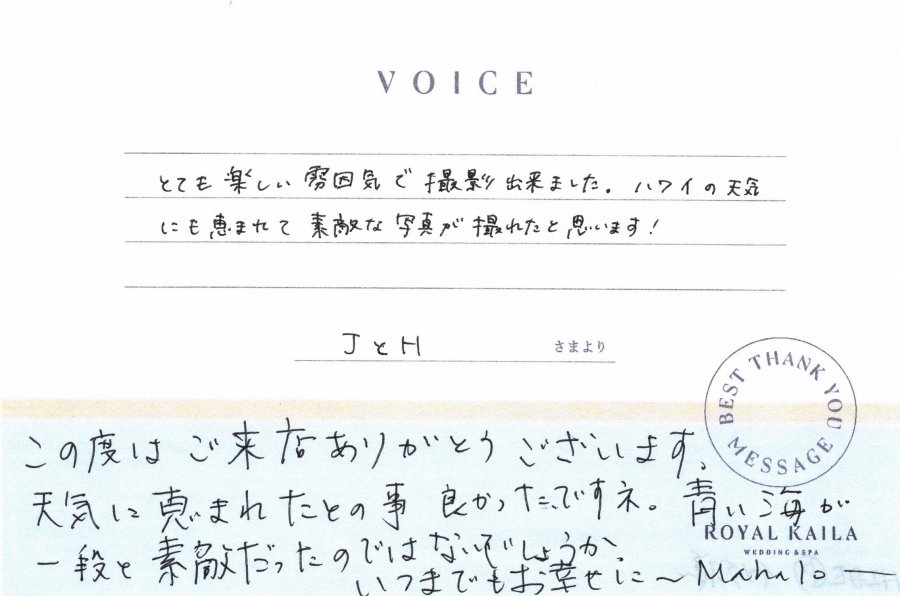 VOICE
とても楽しい雰囲気で撮影出来ました。ハワイの天気
にも恵まれて素敵な写真が撮れたと思います!
JとH さまより
BEST THANK YOU MESSAGE
この度はご来店ありがとうございます。
天気に恵まれたとの事 良かったですネ。青い海が
ROYAL KAILA
WEDDING & SPA
一段と素敵だったのではないでしょうか。
いつまでもお幸せに〜Mahalo